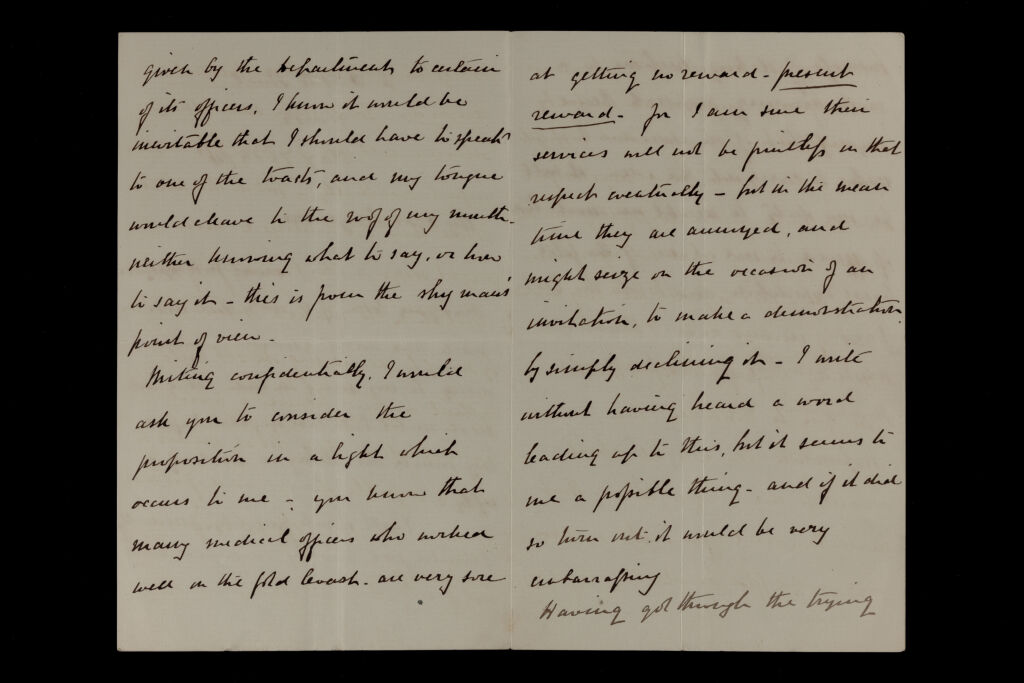 given by the Department to certain
of its officers, I know it would be
inevitable that I should have to speak
to one of the toasts, and my tongue
would cleave to the roof of my mouth.
neither knowing what to say, or how
to say it - this is from the shy man's
point of view.
Writing confidentially, I would
ask you to consider the
proposition in a light which
occurs to me - you know that
many medical officers who worked
well on the Gold Coast - are very sore
at getting no reward - present
reward - for I am sure their
services will not be fruitless in that
respect eventually - but in the mean
time they are annoyed, and
might seize on the occasion of an
invitation, to make a demonstration
by simply declining it - I write
without having heard a word
leading up to this, but it seems to
me a possible thing - and if it did
so turn out it would be very
embarrassing
Having got through the trying